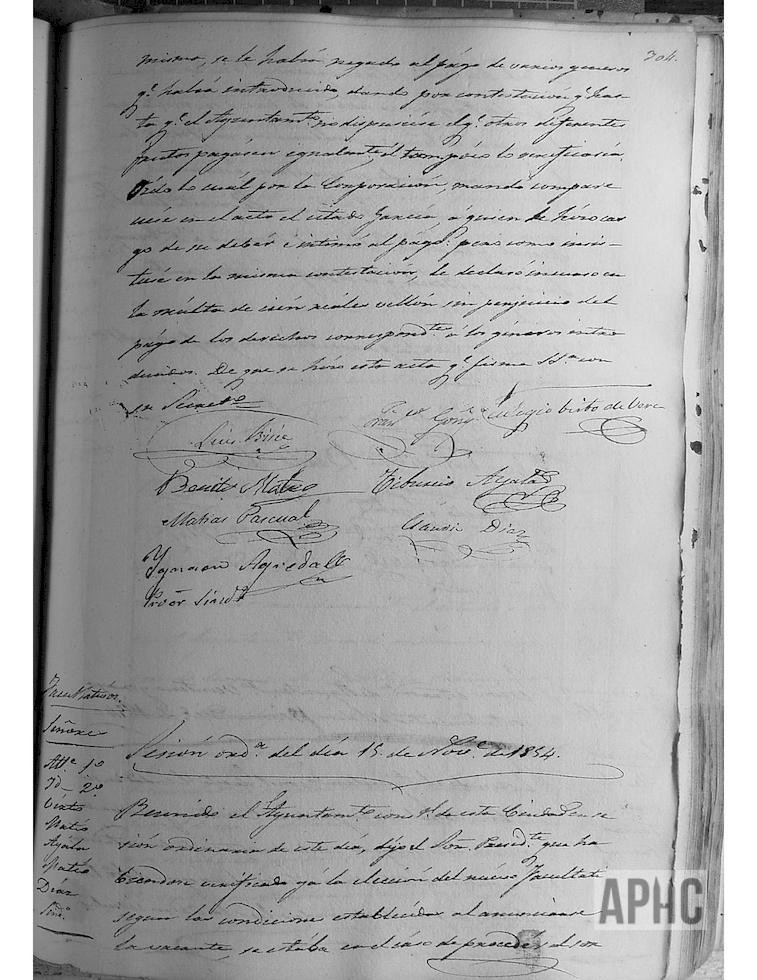 304.
misma, se le habia negado al págo de varios generos
qe. habia introducido, dando por contestacion qe. has-
ta qe. el Ayuntamto. no dispusiese el qe. otros diferentes
pagasen igualmte. él tampóco lo verificaria.
Oido lo cuál por la Corporación, mandó compare
ciese en el acto el citado Garcia, á quien se hizo car
go de su debér é intimó al págo: pero como insis-
tiese en la misma contestación, le declaró incurso en
la múlta de cién reáles vellón sin perjuicio del
págo de los derechos correspondtes. á los géneros intro
ducidos. De que se hizo esta acta qe. firma SSa. con
su Secreto.
Luis Franco. Gonz. Eulogio Pinto de Vera
Benito Mateo Tiburcio Ayala
Matias Pascual Claudio Diaz
Ygnacio Agreda
Procor. Sindo.
Señores
Alte. 1o
Id. 2o
Pinto
Matéo
Ayála
Matéo
Diaz
Sindo.
Sesión orda. del dia 15 de Nove. de 1854.
Reunido el Ayuntamto. conl. de esta Ciudad en se
sión ordinaria de este dia, dijo el Sor. Presidte. que ha
biendose verificado yá la elección del nuevo Facultati
segun las condiciones establecidas al anunciarse
la vacante, se estába en el cáso de procedér al